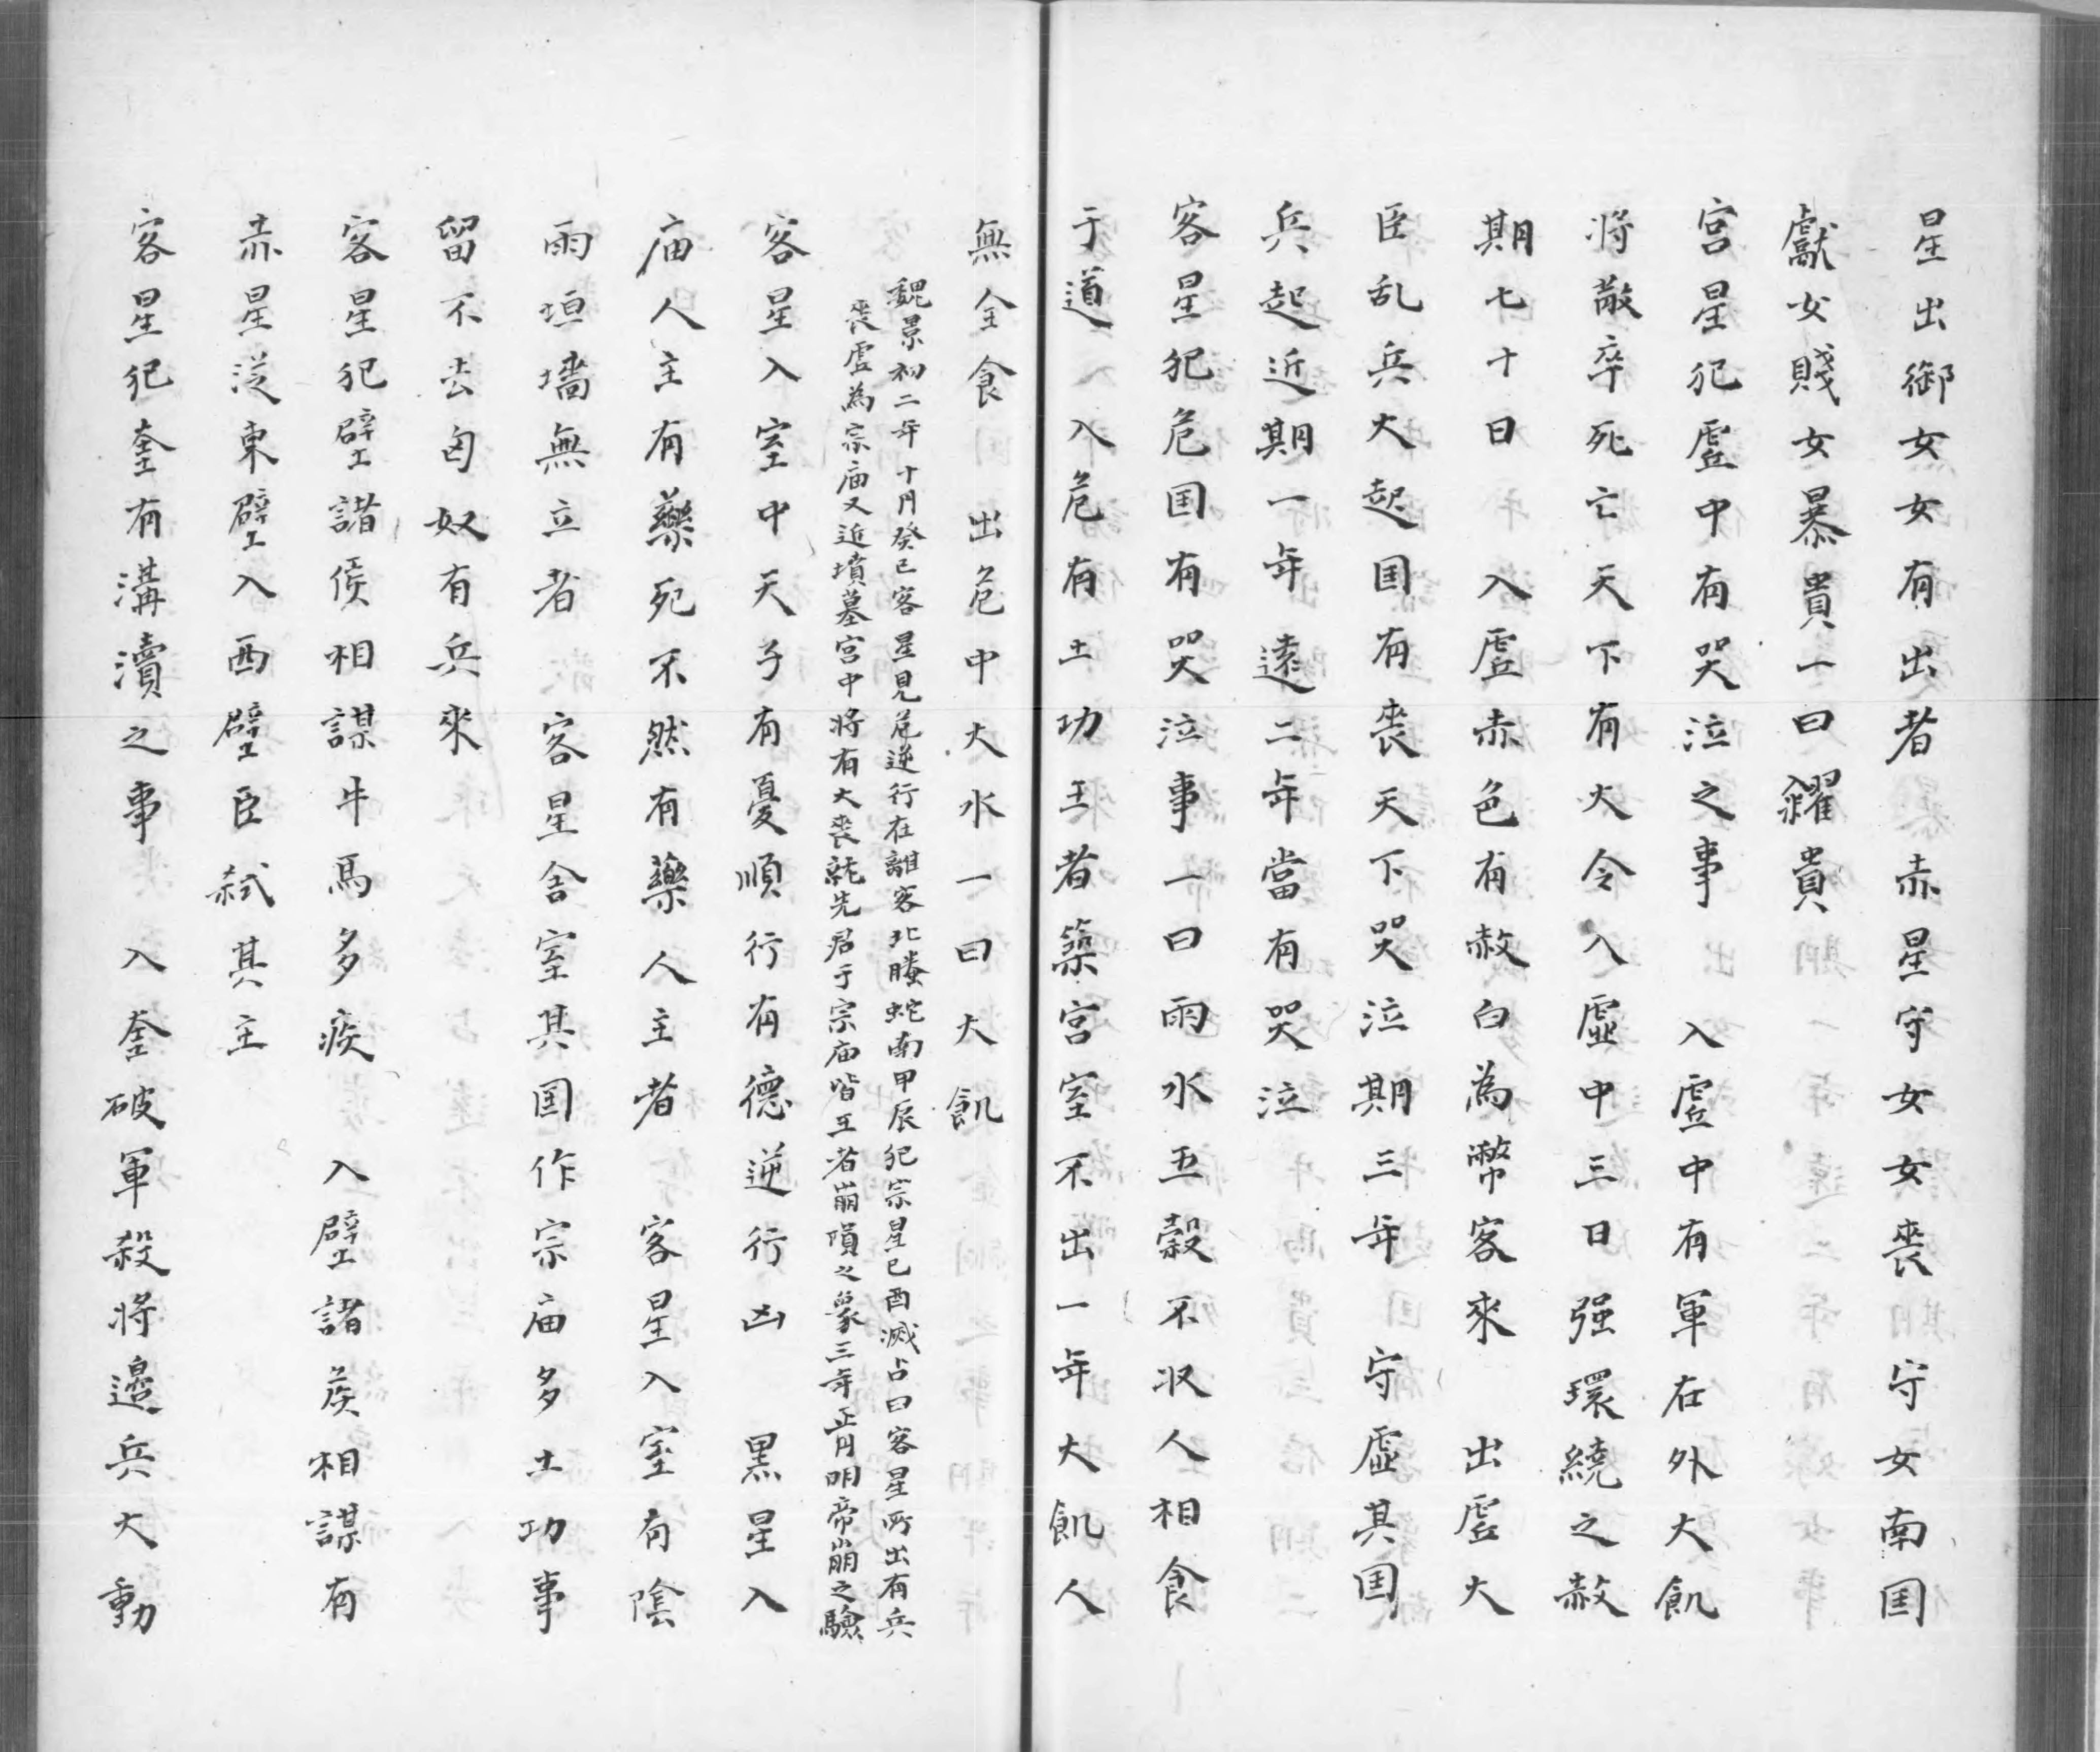 星出御女女有出者　赤星守女女喪　守女南国
獻女賤女暴貴一曰糴貴
宮星犯虛中有哭泣之事　入虛中有軍在外大飢
将散卒死亡天下有大令入虛中三日强環繞之赦
期七十日　入虛赤色有赦白為幣客來　出虛大
臣乱兵大起国有喪天下哭泣期三年　守虛其国
兵起近期一年遠二年當有哭泣
客星犯危国有哭泣事一曰雨水五穀不収人相食
于道　入危有土功王者築宮室不出一年大飢人
無全食　出危中大水一曰大飢
魏景初二年十月癸巳客星見危逆行在離客北螣蛇南甲辰犯宗星己酉滅占曰客星所出有兵
喪虛為宗庙又近墳墓宮中将有大喪就先君于宗庙皆王者崩隕之象三年正月明帝崩之驗
客星入室中天子有憂順行有德逆行凶　黒星入
庙人主有藥死不然有藥人主者　客星入室有陰
雨垣墻無立者　客星舍室其国作宗庙多土功事
留不去匈奴有兵來
客星犯壁諸侯相謀牛馬多疾　入壁諸侯相謀有
赤星従東壁入西壁臣弑其主
客星犯奎有溝瀆之事　入奎破軍殺将邊兵大動